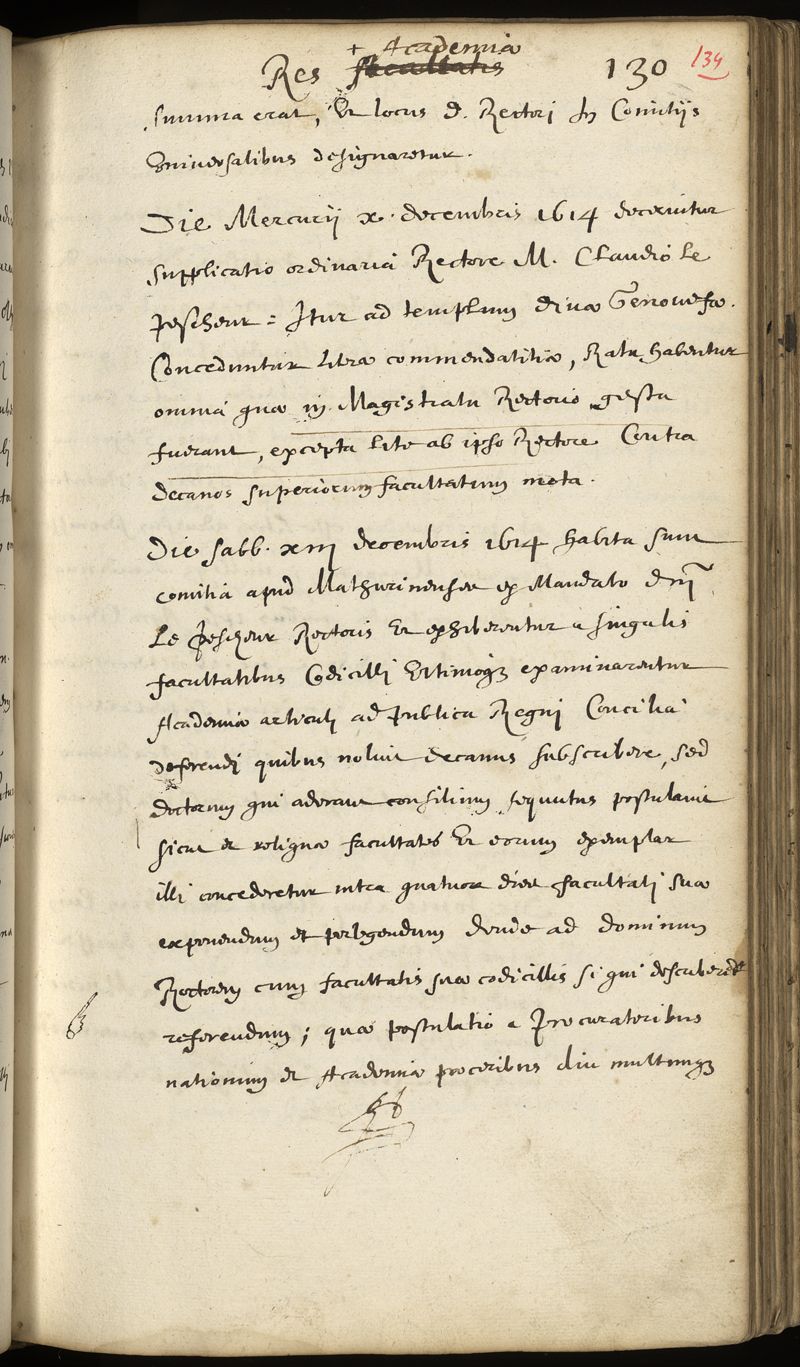 + Academiæ
Res facultatis 130 134
summa erat, Et locus d. Rectori In Comitijs
Universalibus designaretur.
Die Mercurij x. decembris 1614 decernitur
supplicatio ordinaria Rectore M. Claudio Le
pescheur = Itur ad templum divæ Genovefæ.
Conceduntur litræ commendatitiæ, Rata habentur
omnia quæ in Magistratu Rectorio gesta
fuerant, excepta lite ab ipso Rectore Contra
decanos superiorum facultatum mota.
Die sabb. xiij decembris 1614 habita sunt
comitia apud Mathurinenses ex Mandato dni
Le pescheur Rectoris Ut exhiberentur a singulis
facultatibus Codicilli Utimoqz examinarentur
Academiæ articuli ad publica Regni Concilia
deferendi quibus noluit decanus subscribere, sed
doctorum qui aderant consilium sequutus postulavit
sicut et reliquæ facultates Ut eorum exemplar
illi concederetur intra quatuor dies facultati suæ
exponendum et perlegendum deinde ad dominum
Rectorem cum facultatis suæ codicillis si qui
referendum; quæ postulatio a procuratoribus
nationum et Academiæ proceribus diu multumqz